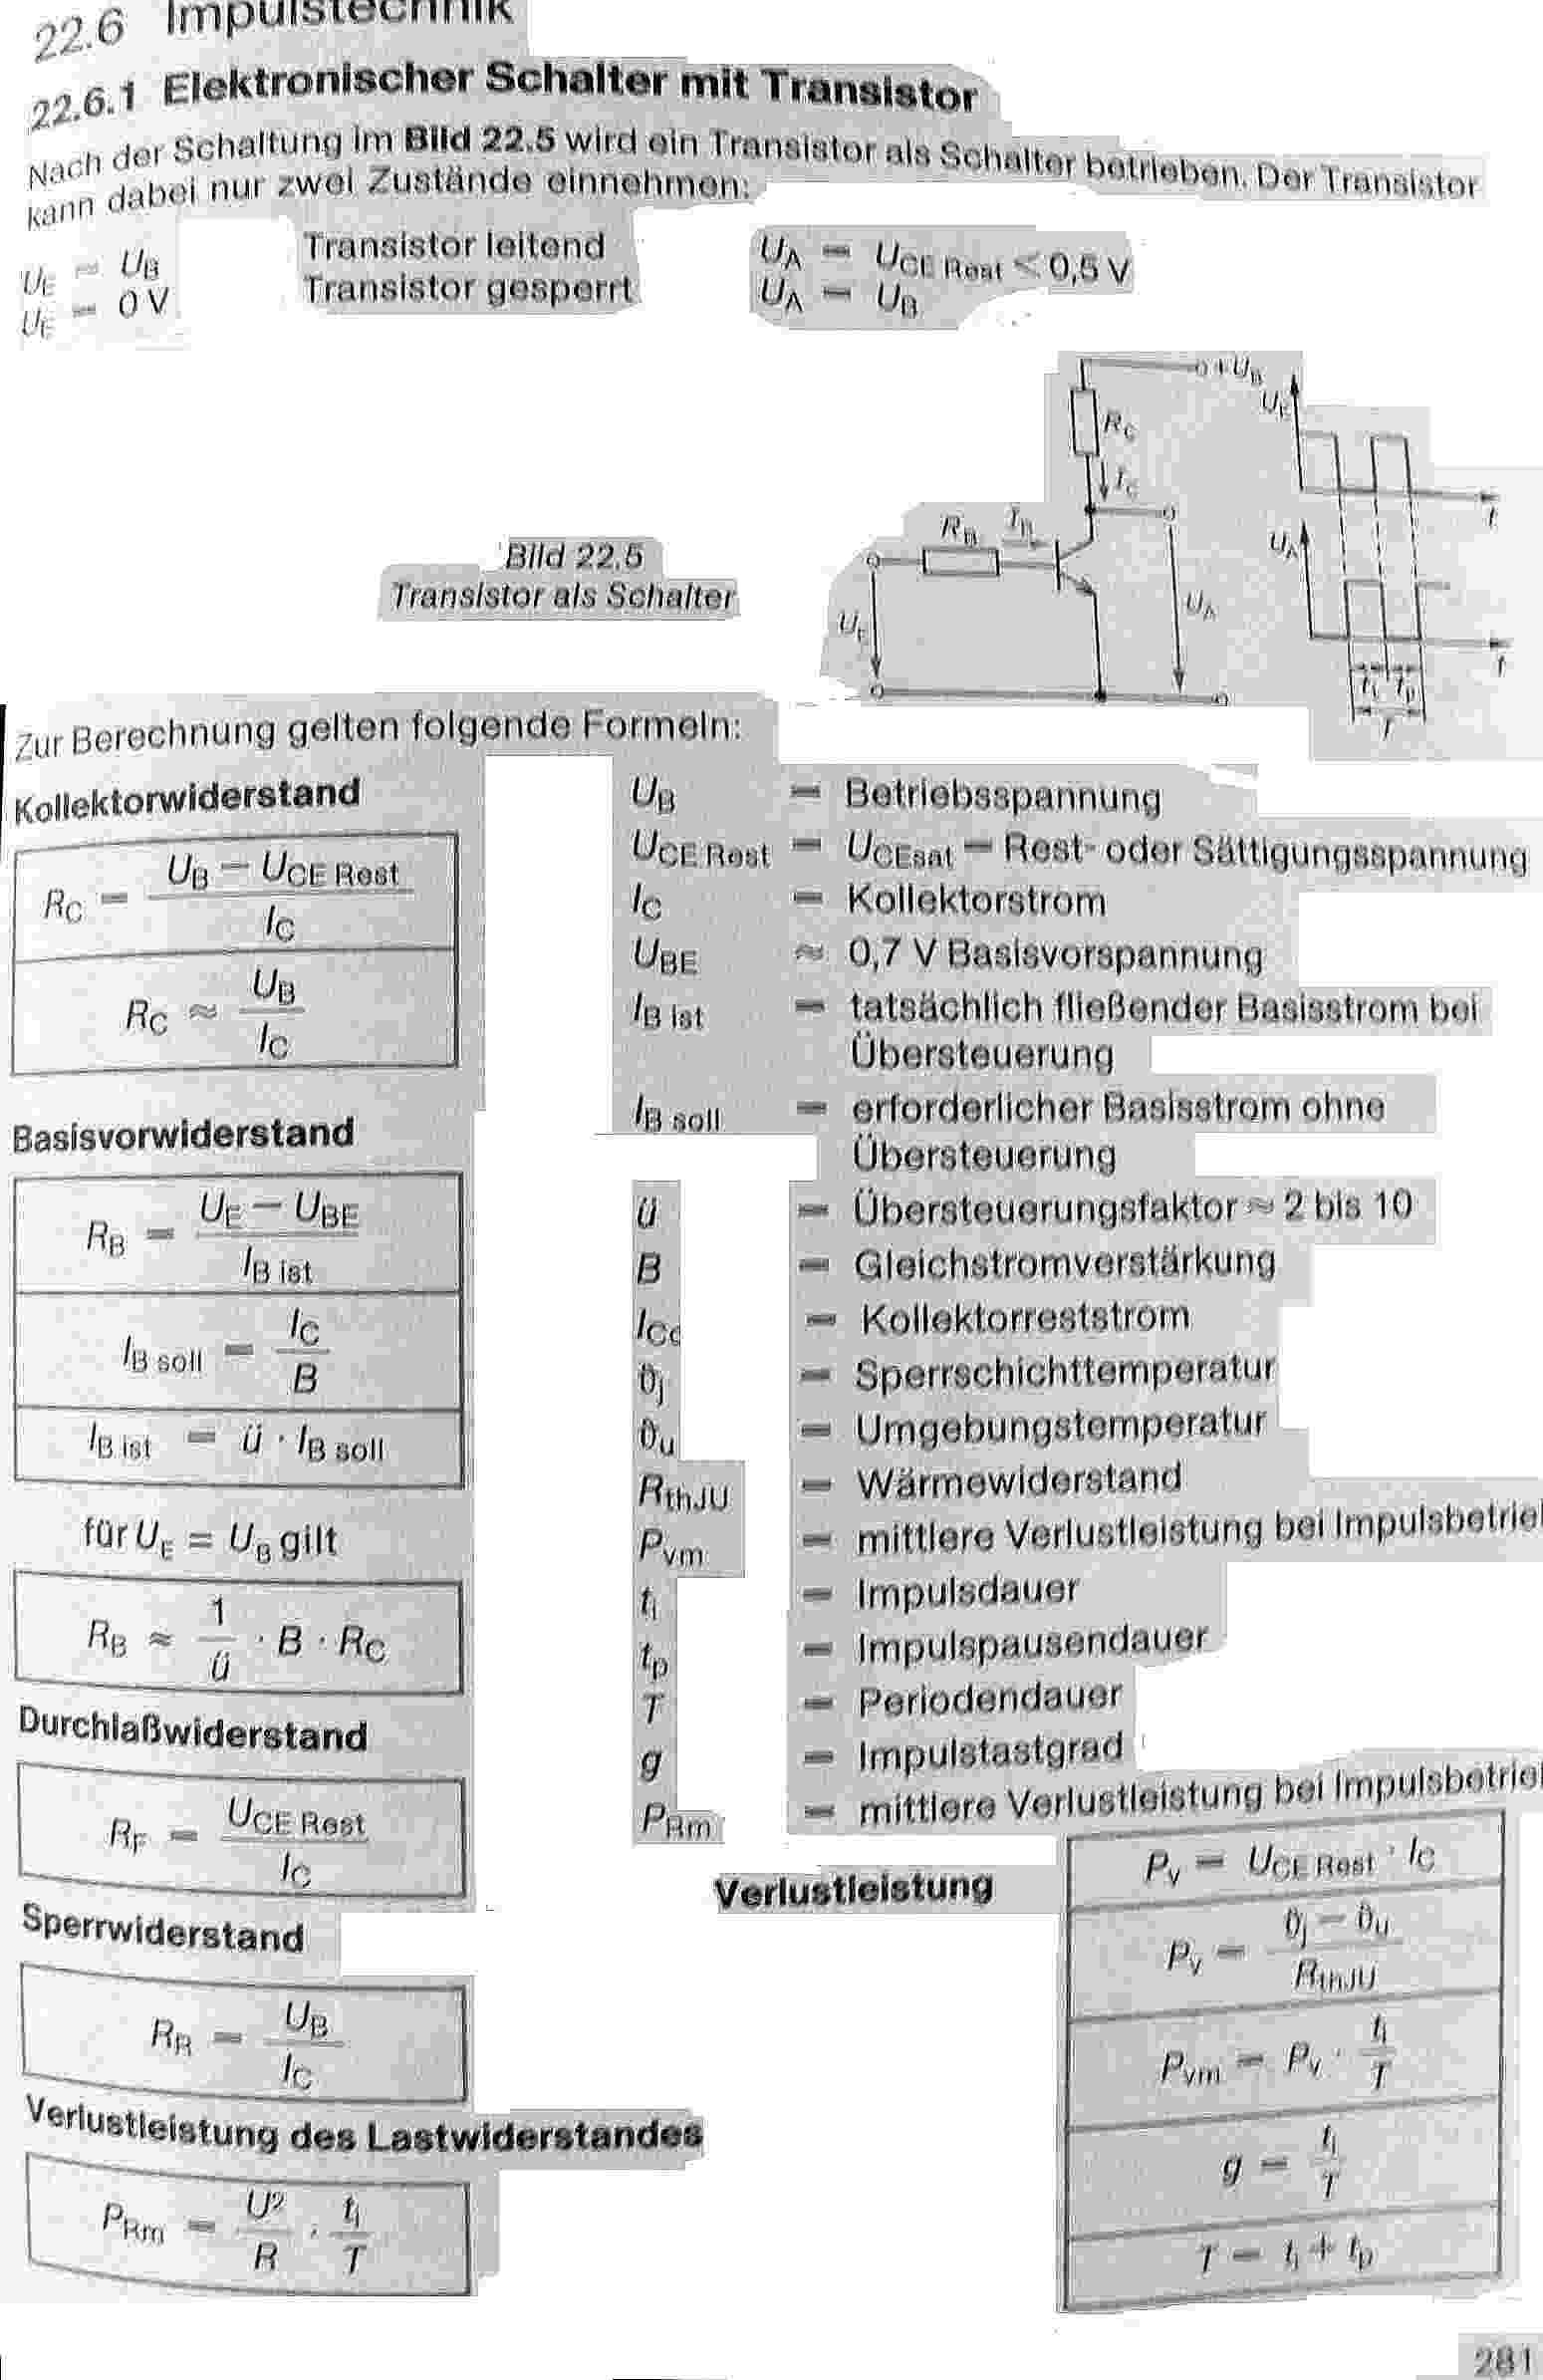 22.6 Impulstechnik
22.6.1 Elektronischer Schalter mit Transistor
Nach der Schaltung im Bild 22.5 wird ein Transistor als Schalter betrieben. Der Transistor
kann dabei nur zwei Zustände einnehmen:
U_E ≈ U_B Transistor leitend U_A = U_CE Rest < 0,5 V
U_E = 0 V Transistor gesperrt U_A = U_B
+U_B
R_C
I_C
R_B I_B
U_E
U_A
U_E
t
U_A
t
t_i t_p
T
Bild 22.5
Transistor als Schalter
Zur Berechnung gelten folgende Formeln:
Kollektorwiderstand
R_C = (U_B − U_CE Rest) / I_C
R_C ≈ U_B / I_C
Basisvorwiderstand
R_B = (U_E − U_BE) / I_B ist
I_B soll = I_C / B
I_B ist = ü · I_B soll
für U_E = U_B gilt
R_B ≈ 1/ü · B · R_C
Durchlaßwiderstand
R_F = U_CE Rest / I_C
Sperrwiderstand
R_R = U_B / I_C
Verlustleistung des Lastwiderstandes
P_Rm = U²/R · t_i/T
U_B = Betriebsspannung
U_CE Rest = U_CEsat = Rest- oder Sättigungsspannung
I_C = Kollektorstrom
U_BE ≈ 0,7 V Basisvorspannung
I_B ist = tatsächlich fließender Basisstrom bei
Übersteuerung
I_B soll = erforderlicher Basisstrom ohne
Übersteuerung
ü = Übersteuerungsfaktor ≈ 2 bis 10
B = Gleichstromverstärkung
= Kollektorreststrom
ϑ_j = Sperrschichttemperatur
ϑ_u = Umgebungstemperatur
R_thJU = Wärmewiderstand
P_vm = mittlere Verlustleistung bei Impulsbetrie
t_i = Impulsdauer
t_p = Impulspausendauer
T = Periodendauer
g = Impulstastgrad
P_Rm = mittlere Verlustleistung bei Impulsbetrie
Verlustleistung
P_v = U_CE Rest · I_C
P_v = (ϑ_j − ϑ_u) / R_thJU
P_vm = P_v · t_i/T
g = t_i/T
T = t_i + t_p
281